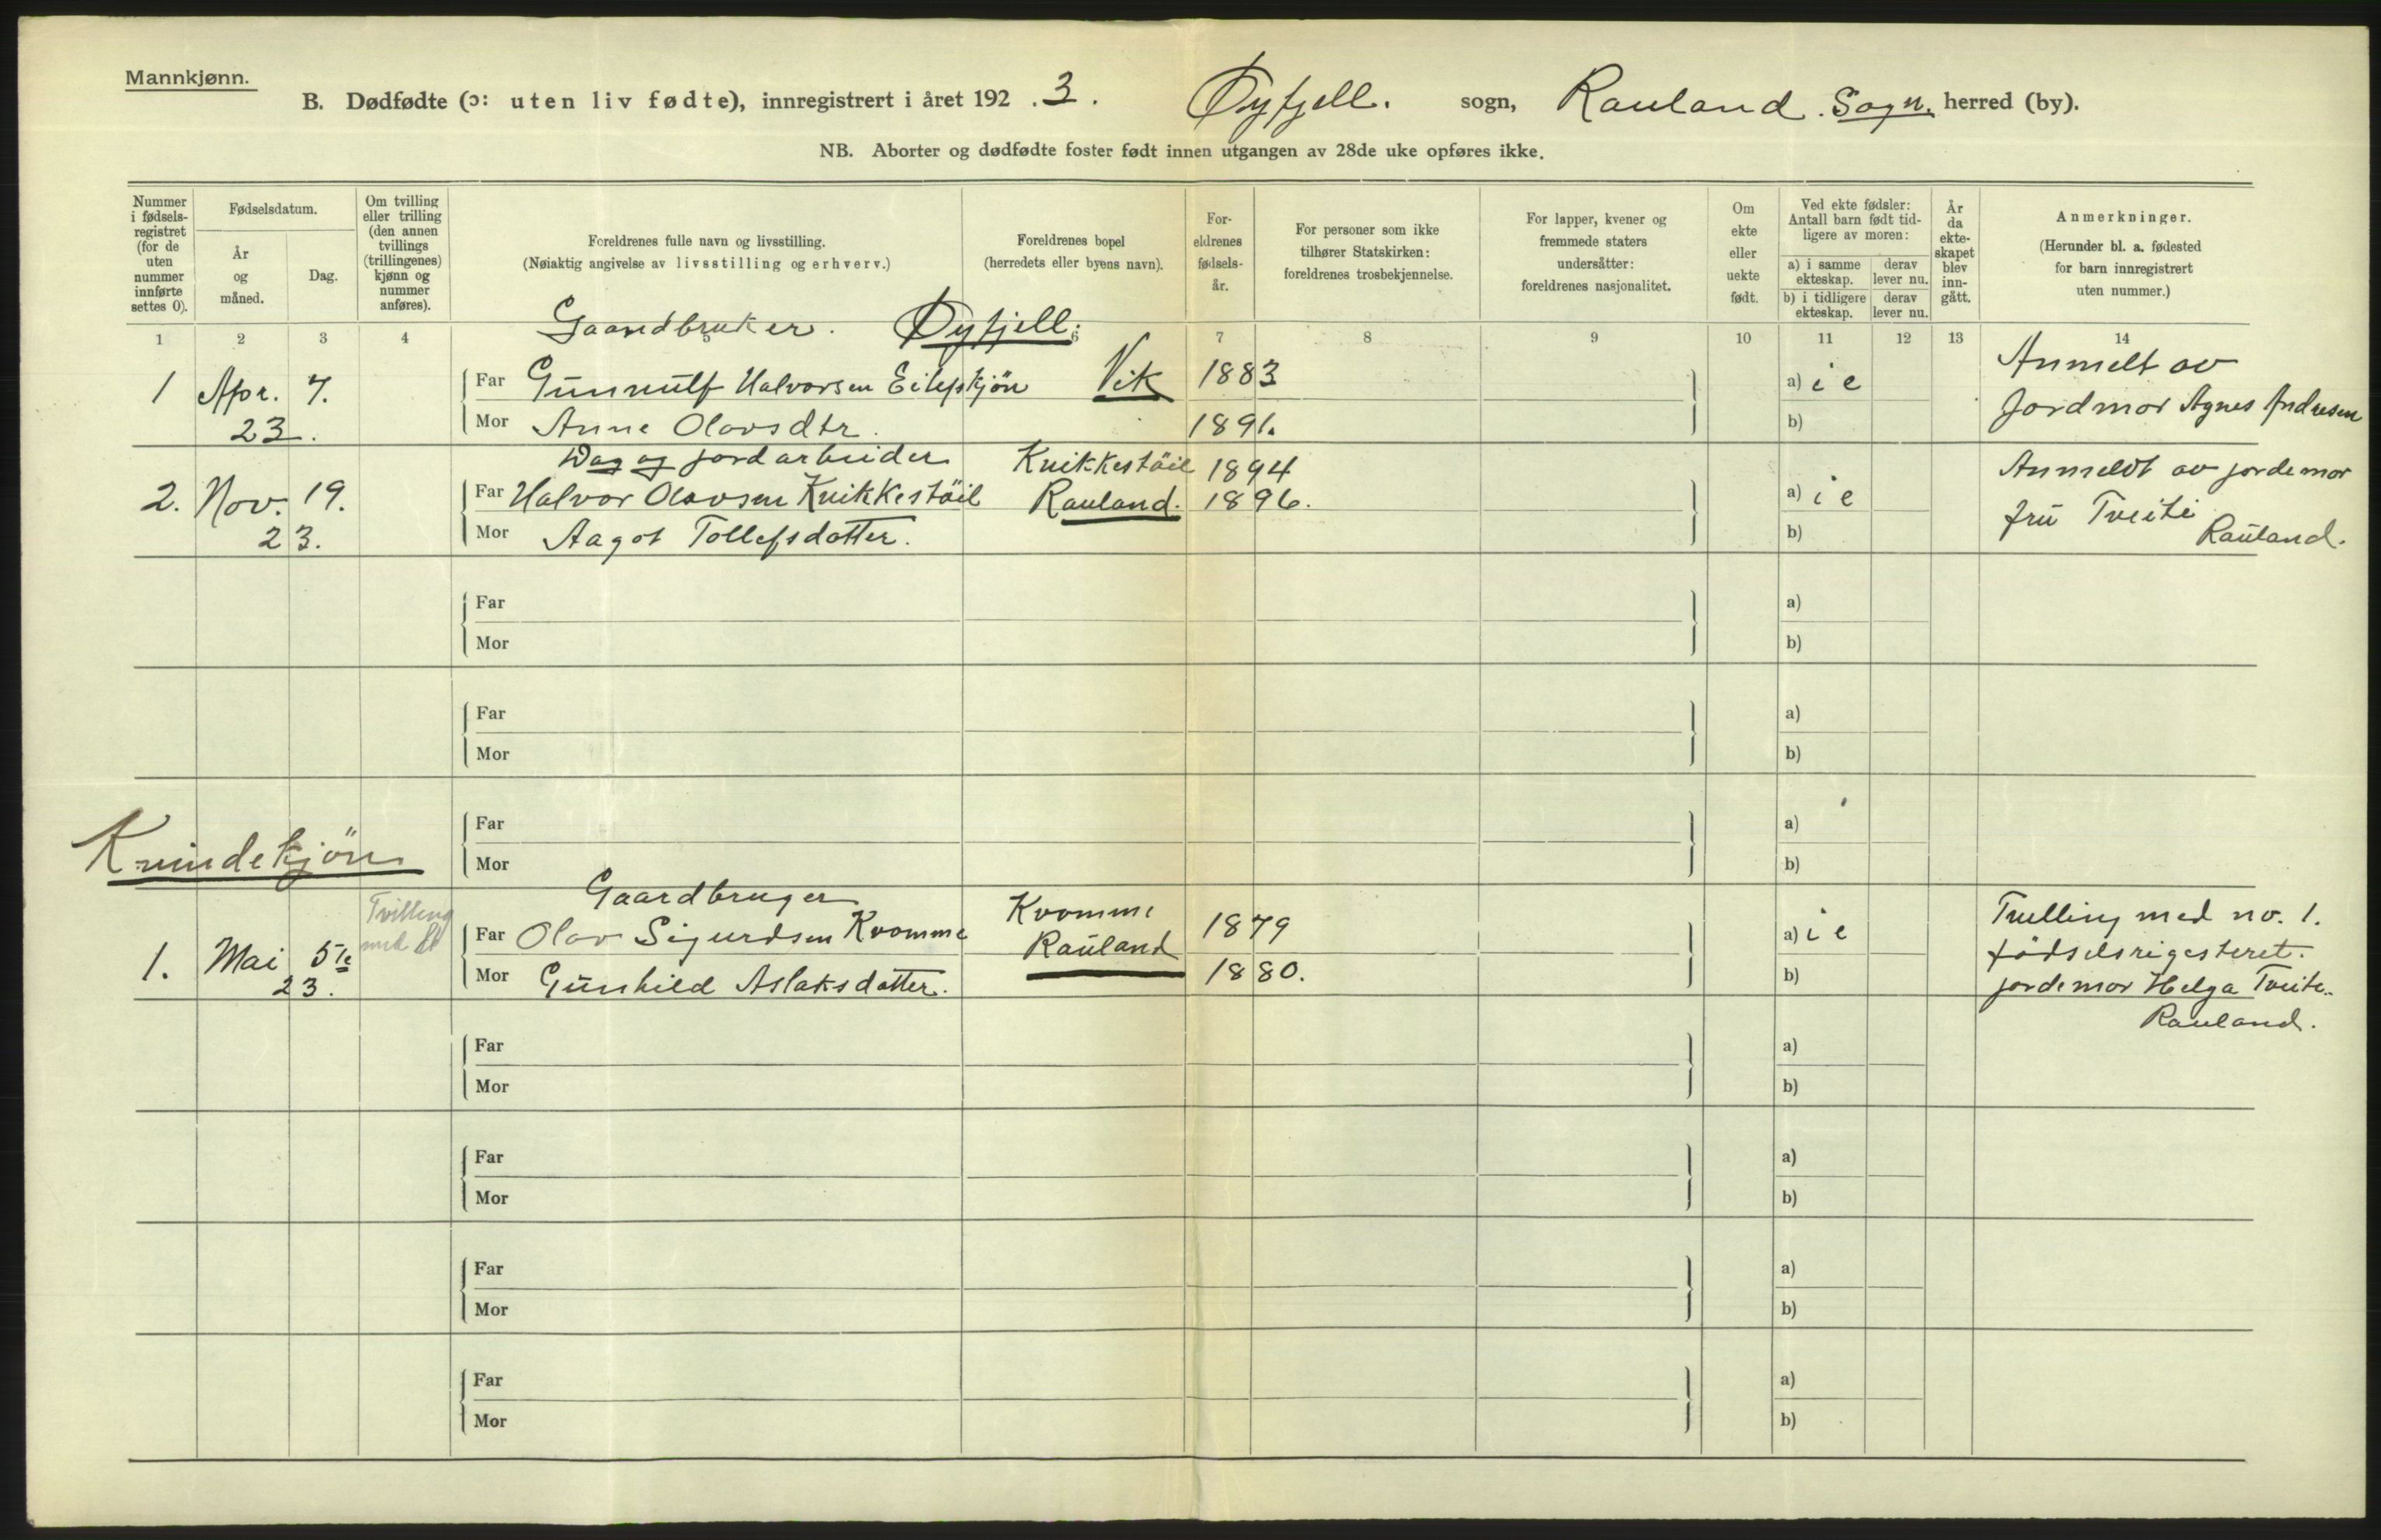 Mannkjønn.
B. Dødfødte (ɔ: uten liv fødte), innregistrert i året 192 .3. Øyfjell. sogn, Rauland . Sogn. herred (by).
NB. Aborter og dødfødte foster født innen utgangen av 28de uke opføres ikke.
Nummer i fødsels-registret (for de uten nummer innførte settes 0).
Fødselsdatum.
År og måned.
Dag.
Om tvilling eller trilling (den annen tvillings (trillingenes) kjønn og nummer anføres).
Foreldrenes fulle navn og livsstilling.
(Nøiaktig angivelse av livsstilling og erhverv.)
Foreldrenes bopel
(herredets eller byens navn).
For-eldrenes fødsels-år.
For personer som ikke tilhører Statskirken: foreldrenes trosbekjennelse.
For lapper, kvener og fremmede staters undersåtter: foreldrenes nasjonalitet.
Om ekte eller uekte født.
Ved ekte fødsler: Antall barn født tid-ligere av moren:
a) i samme ekteskap.
derav lever nu.
b) i tidligere ekteskap.
derav lever nu.
År da ekte-skapet blev inn-gått.
Anmerkninger.
(Herunder bl. a. fødested for barn innregistrert uten nummer.)
1 2 3 4 5 6 7 8 9 10 11 12 13 14
Gaardbruker. Øyfjell.
1 Apr. 7. Far Gunnulf Halvorsen Eilefskjön Vik 1883 a) i e Anmelt av
23. Mor Anne Olavsdtr. 1891. b) Jordmor Agnes Andresen
Dag og jordarbeider Knikkestöil 1894 Anmeldt av jordemor
2. Nov. 19. Far Halvor Olavsen Knikkestöil Rauland. 1896. a) i e fru Tveiti
23. Mor Aagot Tollefsdotter. b) Rauland.
Far a)
Mor b)
Far a)
Mor b)
Far a)
Kvindekjön Mor b)
Gaardbruger Kvomme
Tvilling med
1. Mai 5te Far Olav Sigurdsen Kvomme Rauland 1879 a) i e Tvilling med no. 1.
23. Mor Gunhild Aslaksdotter. 1880. b) födselsrigesteret.
jordemor Helga Tveite.
Rauland.
Far a)
Mor b)
Far a)
Mor b)
Far a)
Mor b)
Far a)
Mor b)